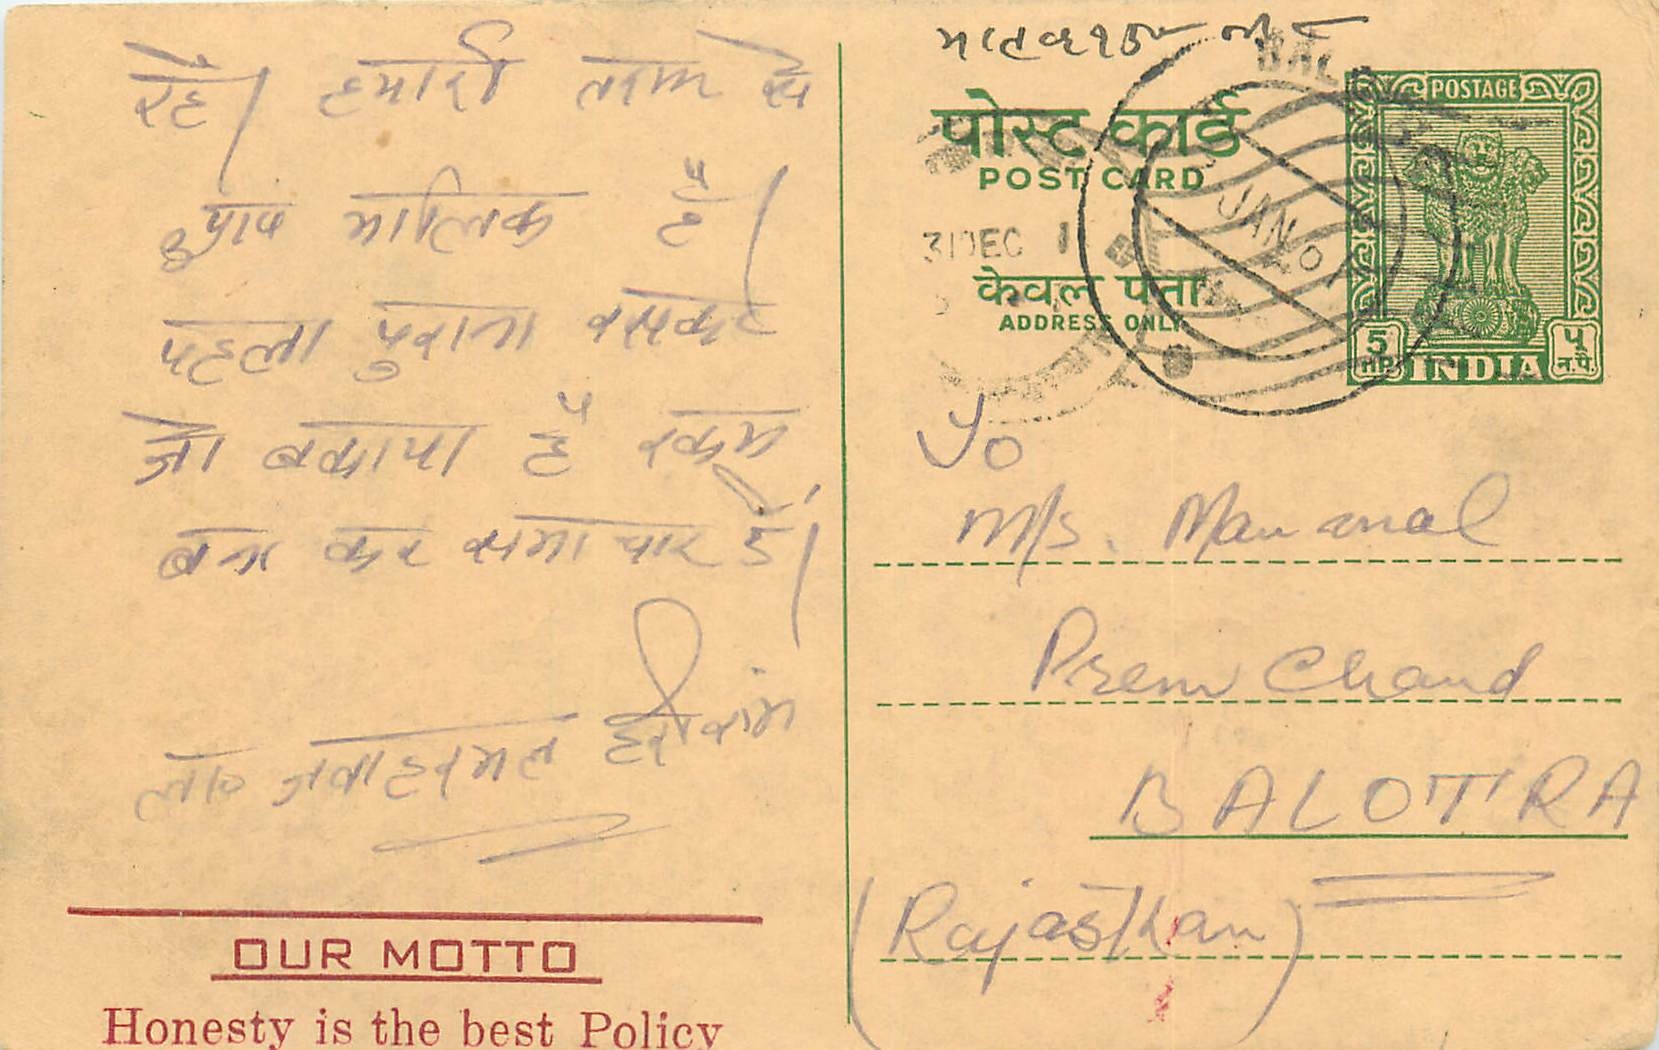 रहें। हमारी तरफ से
आप मालिक हैं।
पहला पुराना
जो बकाया हैं रकम
कर समाचार दें।
जवाहरमल
OUR MOTTO
Honesty is the best Policy
पोस्ट कार्ड
POST CARD
31 DEC
केवल पता
ADDRESS ONLY
BAL
JAN
POSTAGE
5 NP
INDIA
५ न.पै.
To
M/s. Manamal
Prem Chand
BALOTRA
(Rajasthan)